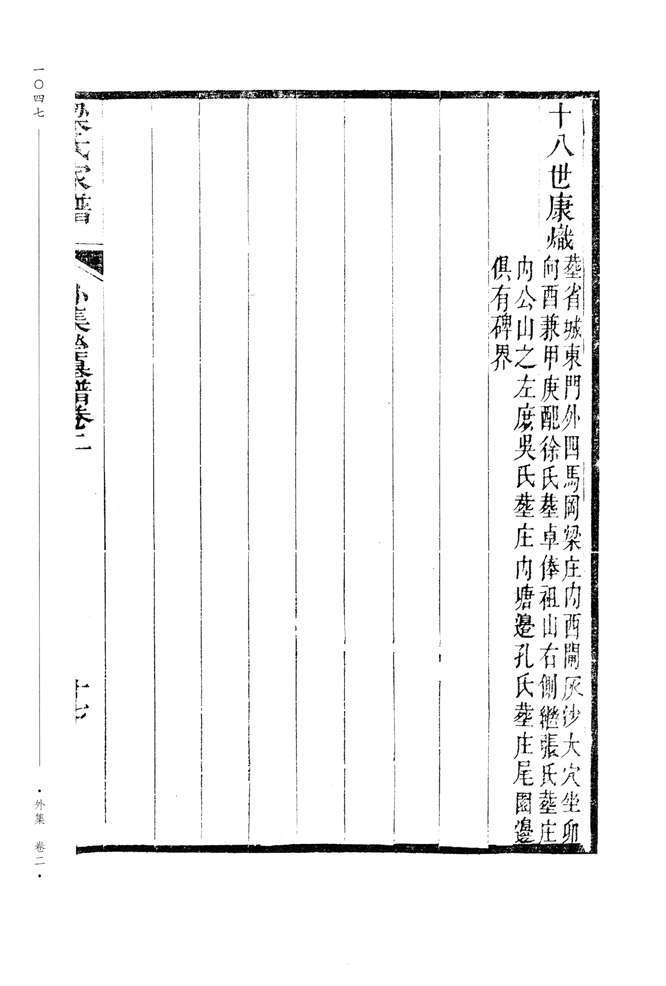 十八世康熾
葬省城東門外四馬岡梁庄内西閘灰沙大穴坐卯
向酉兼甲庚配徐氏葬卓俸祖山右側繼張氏葬庄
内公山之左庶吳氏葬庄内塘邊孔氏葬庄尾園邊
俱有碑界
梁氏家譜
外集塋墓譜卷二
十七
一〇四七
·外集 卷二·